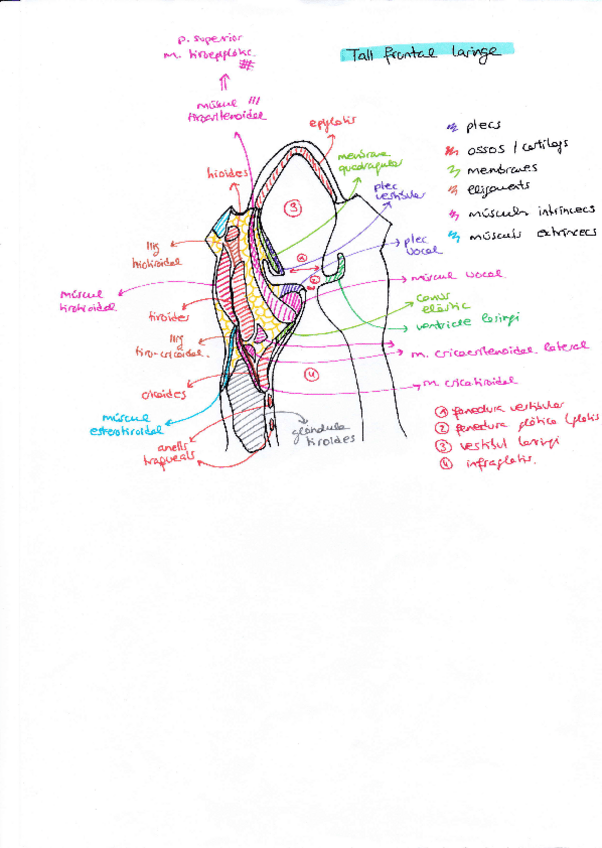 p. superior
m. tiroepiglòtic.
Tall frontal laringe
múscul
tiroaritenoidal
epiglotis
plecs
ossos / cartílags
membranes
lligaments
músculs intrínsecs
músculs extrínsecs
membrana
quadrangular
plec
vestibular
hioides
3
plec
vocal
1
2
llig
hiotiroidal
múscul vocal
múscul
tirohioidal
conus
elàstic
tiroides
ventricle laringi
llig
tiro-cricoidal.
m. cricoaritenoidal lateral
4
m. cricotiroidal
cricoides
1 fenedura vestibular
múscul
esternotiroidal
2 fenedura glòtica (glotis
glàndula
tiroides
3 vestíbul laringi
anells
traqueals
4 infraglotis.